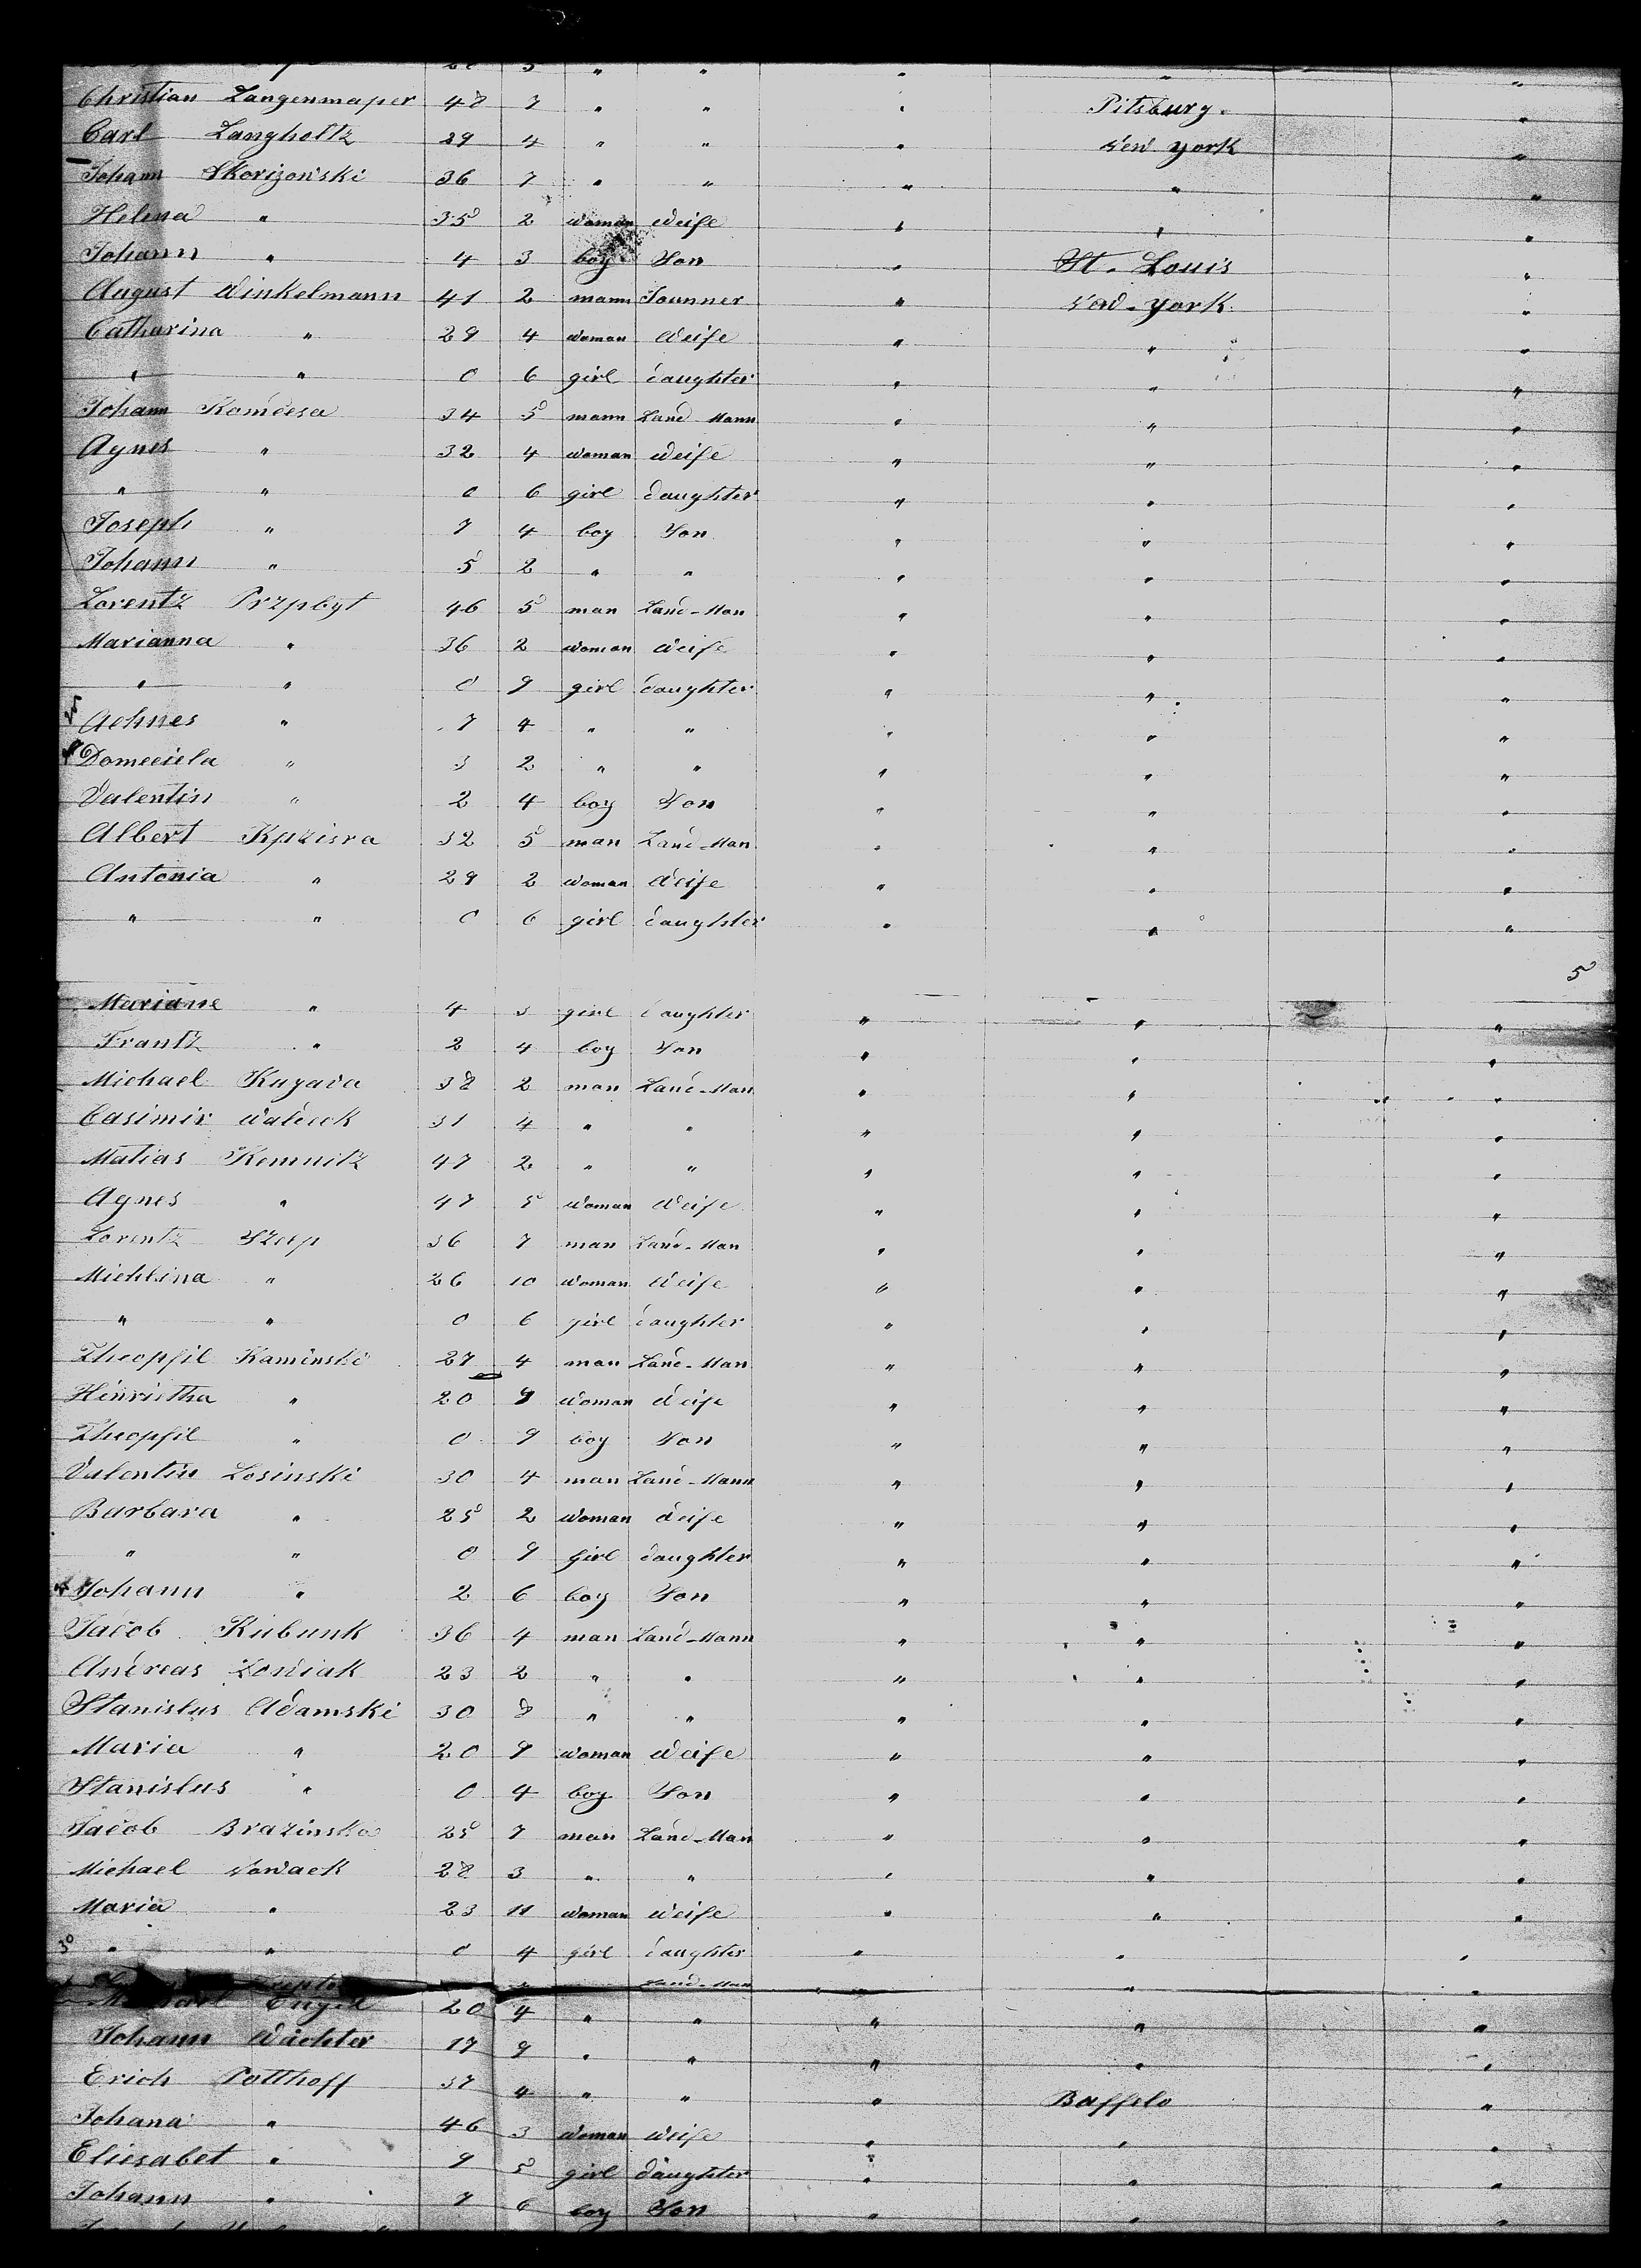 28 5 " " " " "
Christian Langenmaper 48 7 " " " Pitsburg. "
Carl Langholtz 29 4 " " " New York "
Johann Skorizonski 36 7 " " " " "
Helena " 35 2 woman Weife " " "
Johann " 4 3 boy Son " St. Louis "
August Winkelmann 41 2 mann Jounner " New-York. "
Catharina " 29 4 woman Weife " " "
" " 0 6 girl daughter " " "
Johann Komdesa 34 5 mann Land-Mann " " "
Agnes " 32 4 woman Weife " " "
" " 0 6 girl daughter " " "
Joseph " 7 4 boy Son " " "
Johann " 5 2 " " " " "
Lorentz Przpbyt 46 5 man Land-Man " " "
Marianna " 36 2 woman Weife " " "
" " 0 9 girl daughter " " "
Achnes " 7 4 " " " " "
Domeeiela " 3 2 " " " " "
Valentin " 2 4 boy Son " " "
Albert Kpzisra 32 5 man Land-Man " " "
Antonia " 29 2 woman Weife " " "
" " 0 6 girl daughter " " "
5
Mariane " 4 3 girl daughter " " "
Frantz " 2 4 boy Son " " "
Michael Kugava 38 2 man Land-Man " " "
Casimir Wateck 31 4 " " " " "
Matias Kemnitz 47 2 " " " " "
Agnes " 47 5 woman Weife " " "
Lorentz 36 7 man Land-Man " " "
Michlina " 26 10 woman Weife " " "
" " 0 6 girl daughter " " "
Theopfil Kaminski 27 4 man Land-Man " " "
Hinrietha " 20 9 woman Weife " " "
Theopfil " 0 9 boy Son " " "
Valentin Losinski 30 4 man Land-Mann " " "
Barbara " 25 2 woman Weife " " "
" " 0 9 girl daughter " " "
Johann " 2 6 boy Son " " "
Jacob Kubunk 36 4 man Land-Mann " " "
Andreas Lowiak 23 2 " " " " "
Stanislus Adamski 30 8 " " " " "
Maria " 20 9 woman Weife " " "
Stanislus " 0 4 boy Son " " "
Jacob Brazinska 25 7 man Land-Man " " "
Michael Nowack 28 3 " " " " "
Maria " 23 11 woman Weife " " "
" " 0 4 girl daughter " " "
Land-Man " " "
Engel 20 4 " " " " "
Johann Wächter 17 9 " " " " "
Erich Potthoff 37 4 " " " Baffelo "
Johana " 46 3 woman Weife " " "
Eliesabet " 9 5 girl daughter " " "
Johann " 7 6 boy Son " " "